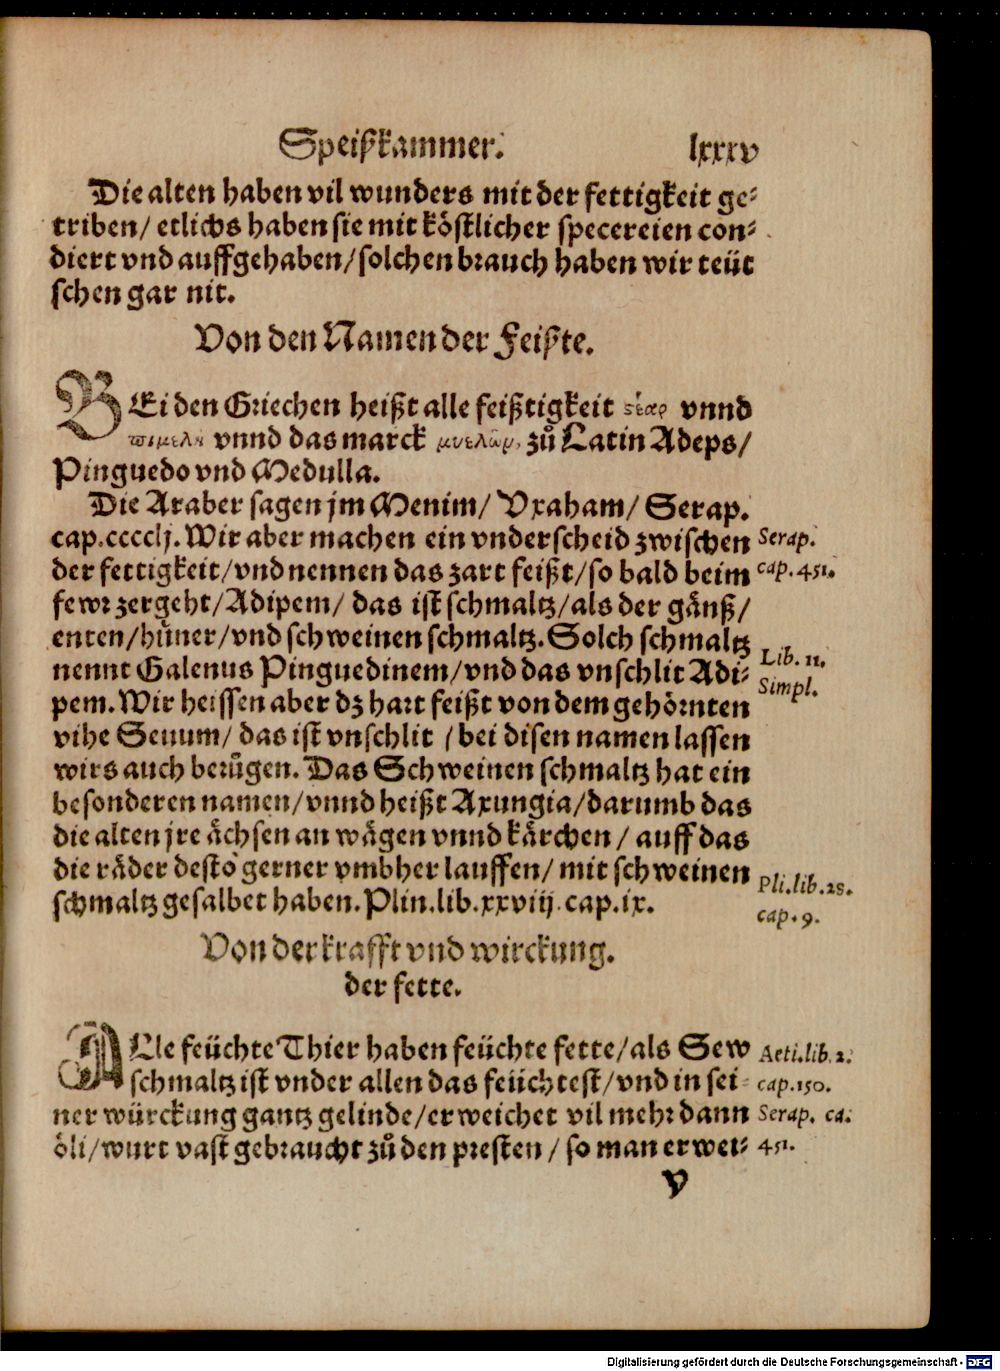 Speißkammer. lxxxv
Die alten haben vil wunders mit der fettigkeit ge⸗
triben/ etlichs haben sie mit köstlicher specereien con⸗
diert vnd auffgehaben/solchen brauch haben wir teüt
schen gar nit.
Von den Namen der Feißte.
BEi den Griechen heißt alle feißtigkeit στέαρ vnnd
πιμελὴ vnnd das marck μυελὸν, zů Latin Adeps/
Pinguedo vnd Medulla.
Die Araber sagen jm Menim/ Vxaham/ Serap.
cap.cccclj. Wir aber machen ein vnderscheid zwischen Serap.
der fettigkeit/vnd nennen das zart feißt/so bald beim cap. 451.
fewr zergeht/Adipem/ das ist schmaltz/als der gänß/
enten/hůner/vnd schweinen schmaltz. Solch schmaltz
nennt Galenus Pinguedinem/vnd das vnschlit Adi⸗ Lib. 11.
pem. Wir heissen aber dz hart feißt von dem gehörnten Simpl.
vihe Seuum/ das ist vnschlit / bei disen namen lassen
wirs auch berůgen. Das Schweinen schmaltz hat ein
besonderen namen/vnnd heißt Axungia/darumb das
die alten jre ächsen an wägen vnnd kärchen / auff das
die räder desto gerner vmbher lauffen/ mit schweinen Pli.lib.28.
schmaltz gesalbet haben. Plin.lib.xxviij.cap.ix. cap. 9.
Von der krafft vnd wirckung.
der fette.
ALle feüchte Thier haben feüchte fette/als Sew Aeti.lib. 2.
schmaltz ist vnder allen das feüchtest/vnd in sei⸗ cap.150.
ner würckung gantz gelinde/erweichet vil mehr dann Serap. ca.
öli/wurt vast gebraucht zů den presten / so man erwei⸗ 451.
V
Digitalisierung gefördert durch die Deutsche Forschungsgemeinschaft - DFG